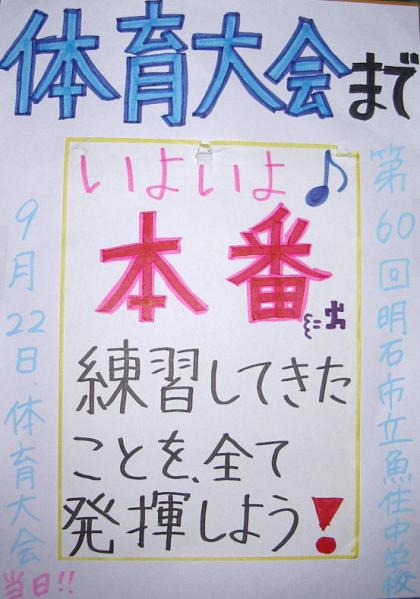 体育大会まで
いよいよ♪
本番
練習してきた
ことを、全て
発揮しよう!
第60回明石市立魚住中学校
9月22日、体育大会
当日!!